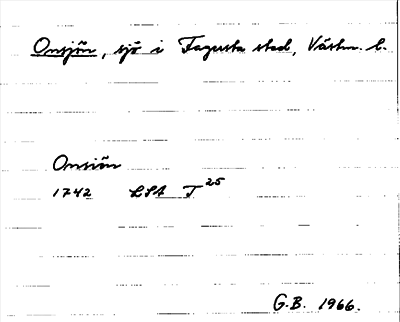 Onsjön, sjö i Fagersta stad, Västm. l.
Onsiön
1742 LSA T 25
G.B. 1966.